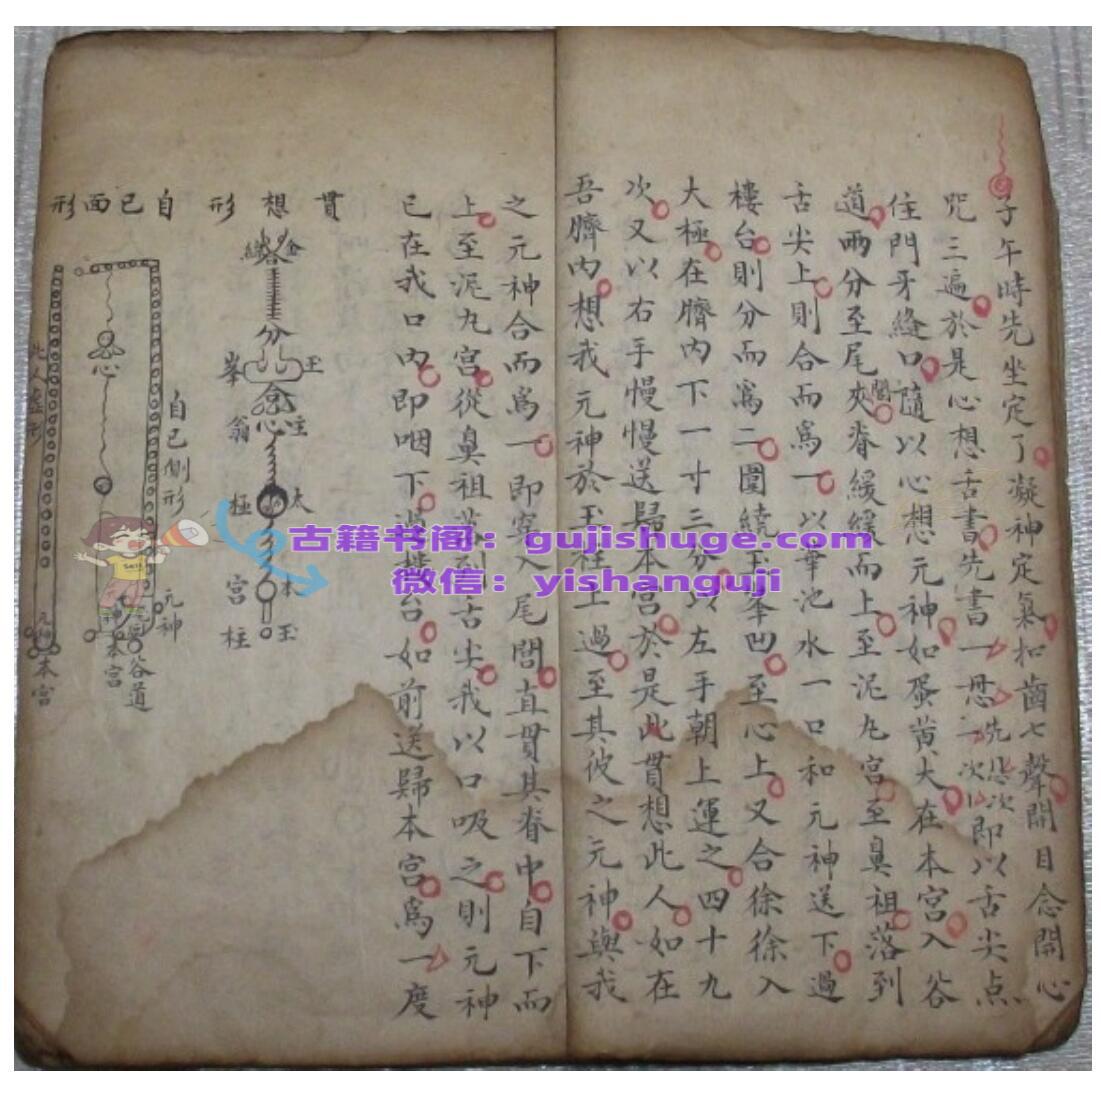 子午時先坐定了凝神定氣扣齒七聲開目念開心
咒三遍於是心想舌書先書一
次即以舌尖点
住門牙縫口隨以心想元神如蛋黄大在本宮入谷
道兩分至尾閭夾脊緩緩而上至泥丸宮至鼻祖落到
舌尖上則合而爲一以華池水一口和元神送下過
樓台則分而爲二圍繞玉峯凹至心上又合徐徐入
大極在臍內下一寸三分以左手朝上運之四十九
次又以右手慢慢送歸本宮於是此貫想此人如在
吾臍內想我元神於玉柱上過至其彼之元神與我
之元神合而爲一即穿入尾閭直貫其脊中自下而
上至泥丸宮從鼻祖落到舌尖我以口吸之則元神
已在我口內即咽下過樓台如前送歸本宮爲一度
貫想形
合
分
玉峯
心
翁
太極
本宮
玉柱
自己面形
自己側形
元神
谷道
本宮
此人虛形
元神
本宮
古籍书阁：gujishuge.com
微信：yishanguji